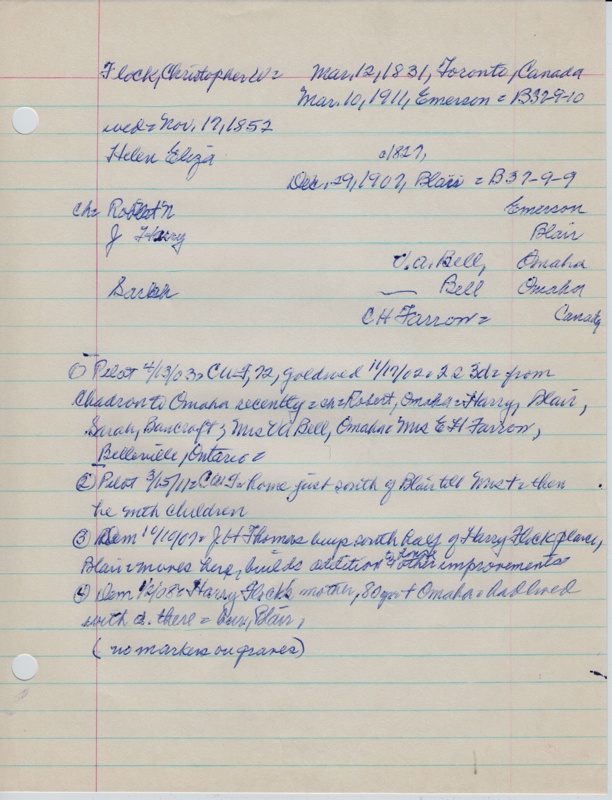 Flock, Christopher W = Mar. 12, 1831, Toronto, Canada
Mar. 10, 1911, Emerson = B37-9-10
wed = Nov. 17, 1852
Helen Eliza c1827,
Dec. 29, 1907, Blair = B37-9-9
ch = Robert N Emerson
J Harry Blair
V. A. Bell, Omaha
Sarah — Bell Omaha
C H Farrow = Canada
① Pilot 4/13/03 = CWF, 72, gold wed 11/17/02 = 2s 3d = from
Chadron to Omaha recently = ch = Robert, Omaha = Harry, Blair,
Sarah, Bancroft & Mrs VA Bell, Omaha = Mrs EH Farrow,
Belleville, Ontario =
② Pilot 3/15/11 = CWF = home just south of Blair till Mrs + = then
he with children
③ Dem 10/19/07 = J H Thomas buys south half of Harry Flock place,
Blair = moves here, builds addition to house & other improvements
④ Dem 1/2/08 = Harry Flock's mother, 80 yrs + Omaha = had lived
with d. there = bur, Blair,
(no markers on graves)